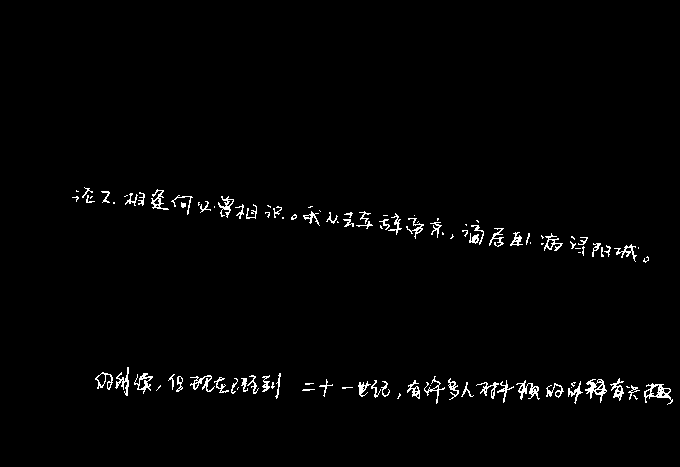 沦人,相逢何必曾相识。我从去年辞帝京,谪居卧病浔阳城。
的解读,但现在已经到二十一世纪,有许多人对牛顿的解释有兴趣